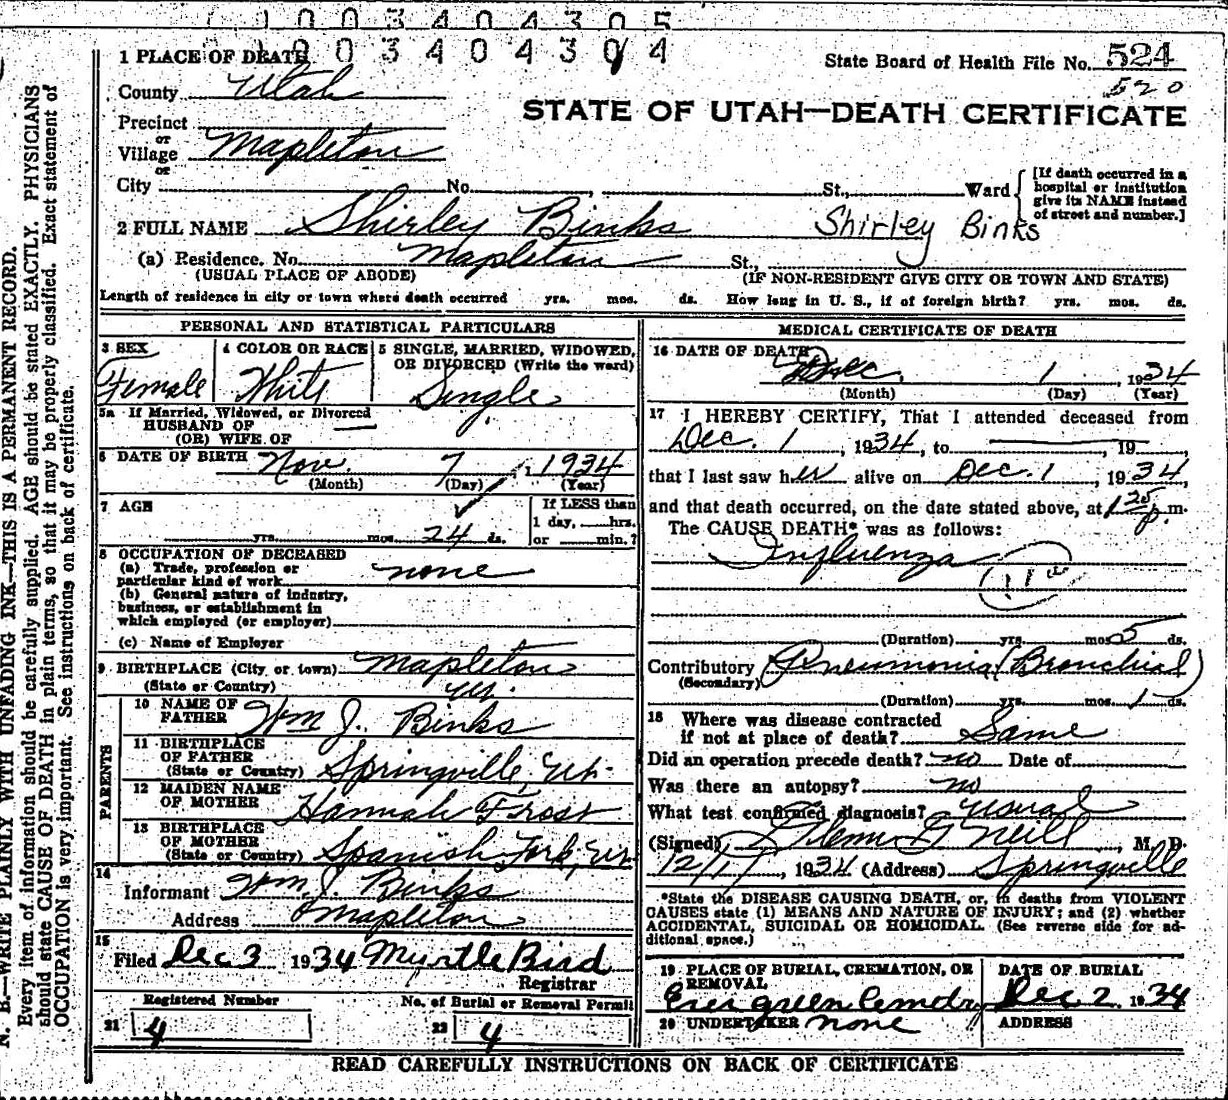 1003404305
1003404304
1 PLACE OF DEATH
State Board of Health File No. 524
County Utah
520
STATE OF UTAH—DEATH CERTIFICATE
Precinct
or
Village Mapleton
or
City No. , St., Ward
[If death occurred in a hospital or institution give its NAME instead of street and number.]
2 FULL NAME Shirley Binks Shirley Binks
(a) Residence. No. Mapleton St.,
(USUAL PLACE OF ABODE) (IF NON-RESIDENT GIVE CITY OR TOWN AND STATE)
Length of residence in city or town where death occurred yrs. mos. ds. How long in U. S., if of foreign birth? yrs. mos. ds.
PERSONAL AND STATISTICAL PARTICULARS
3 SEX
Female
4 COLOR OR RACE
White
5 SINGLE, MARRIED, WIDOWED,
OR DIVORCED (Write the word)
Single
5a If Married, Widowed, or Divorced
HUSBAND OF
(OR) WIFE OF
6 DATE OF BIRTH Nov. 7, 1934
(Month) (Day) (Year)
7 AGE
yrs. mos. 24 ds.
If LESS than
1 day, hrs.
or min.?
8 OCCUPATION OF DECEASED
(a) Trade, profession or
particular kind of work none
(b) General nature of industry,
business, or establishment in
which employed (or employer)
(c) Name of Employer
9 BIRTHPLACE (City or town) Mapleton
(State or Country) Ut.
PARENTS
10 NAME OF
FATHER Wm J. Binks
11 BIRTHPLACE
OF FATHER
(State or Country) Springville, Ut.
12 MAIDEN NAME
OF MOTHER Hannah Frost
13 BIRTHPLACE
OF MOTHER
(State or Country) Spanish Fork, Ut.
14
Informant Wm J. Binks
Address Mapleton
15
Filed Dec 3 1934 Myrtle Bird
Registrar
Registered Number
21 4
No. of Burial or Removal Permit
22 4
MEDICAL CERTIFICATE OF DEATH
16 DATE OF DEATH
Dec. 1, 1934
(Month) (Day) (Year)
17 I HEREBY CERTIFY, That I attended deceased from
Dec. 1, 1934, to 19
that I last saw her alive on Dec. 1, 1934,
and that death occurred, on the date stated above, at 1 25 p.m.
The CAUSE DEATH* was as follows:
Influenza
11a
(Duration) yrs. mos 5 ds.
Contributory Pneumonia (Bronchial)
(Secondary)
(Duration) yrs. mos. 1 ds.
18 Where was disease contracted
if not at place of death? Same
Did an operation precede death? no Date of
Was there an autopsy? no
What test confirmed diagnosis? usual
(Signed) Glenn G Neill, M. D.
12/1, 1934 (Address) Springville
*State the DISEASE CAUSING DEATH, or, in deaths from VIOLENT
CAUSES state (1) MEANS AND NATURE OF INJURY; and (2) whether
ACCIDENTAL, SUICIDAL OR HOMICIDAL. (See reverse side for ad-
ditional space.)
19 PLACE OF BURIAL, CREMATION, OR
REMOVAL
Evergreen Cemetery
DATE OF BURIAL
Dec 2 1934
20 UNDERTAKER none
ADDRESS
READ CAREFULLY INSTRUCTIONS ON BACK OF CERTIFICATE
N. B.—WRITE PLAINLY WITH UNFADING INK—THIS IS A PERMANENT RECORD.
Every item of information should be carefully supplied. AGE should be stated EXACTLY. PHYSICIANS
should state CAUSE OF DEATH in plain terms, so that it may be properly classified. Exact statement of
OCCUPATION is very important. See instructions on back of certificate.